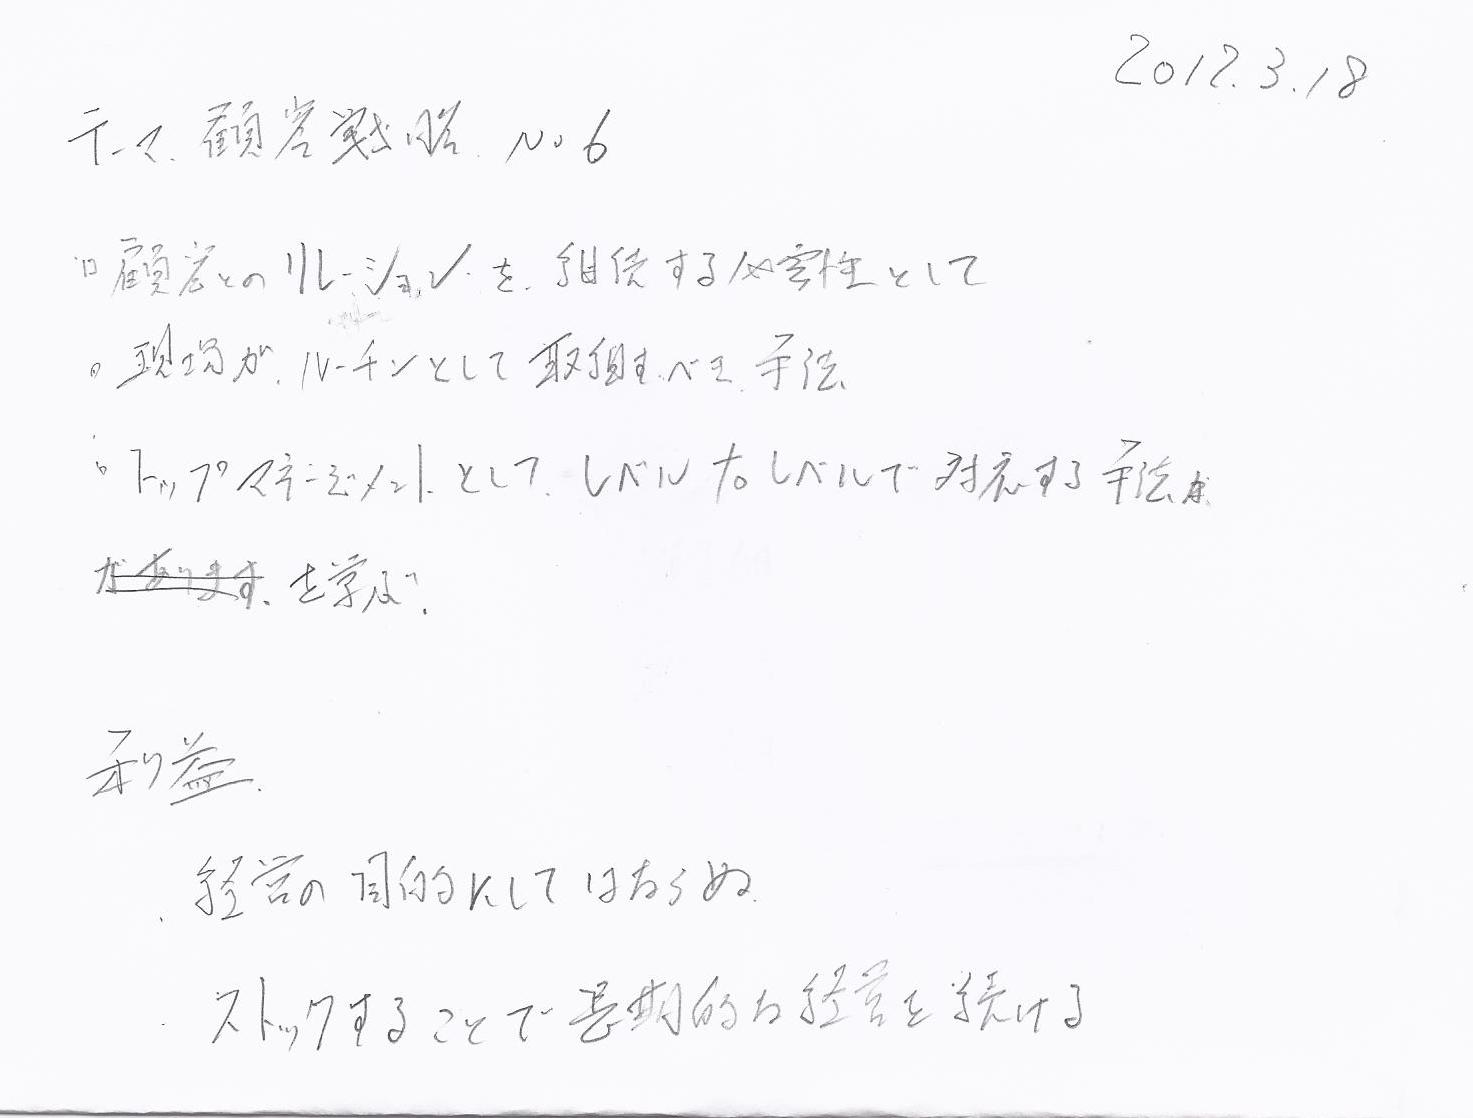 2012.3.18
テーマ. 顧客戦略. No 6
顧客とのリレーションを. 継続する必要性として
現場が. ルーチンとして取組むべき. 手法.
トップマネージメント. として. レベル to レベルで対応する手法
があります. を学ぶ.
利益.
経営の目的にしてはならぬ.
ストックすることで長期的な経営を続ける